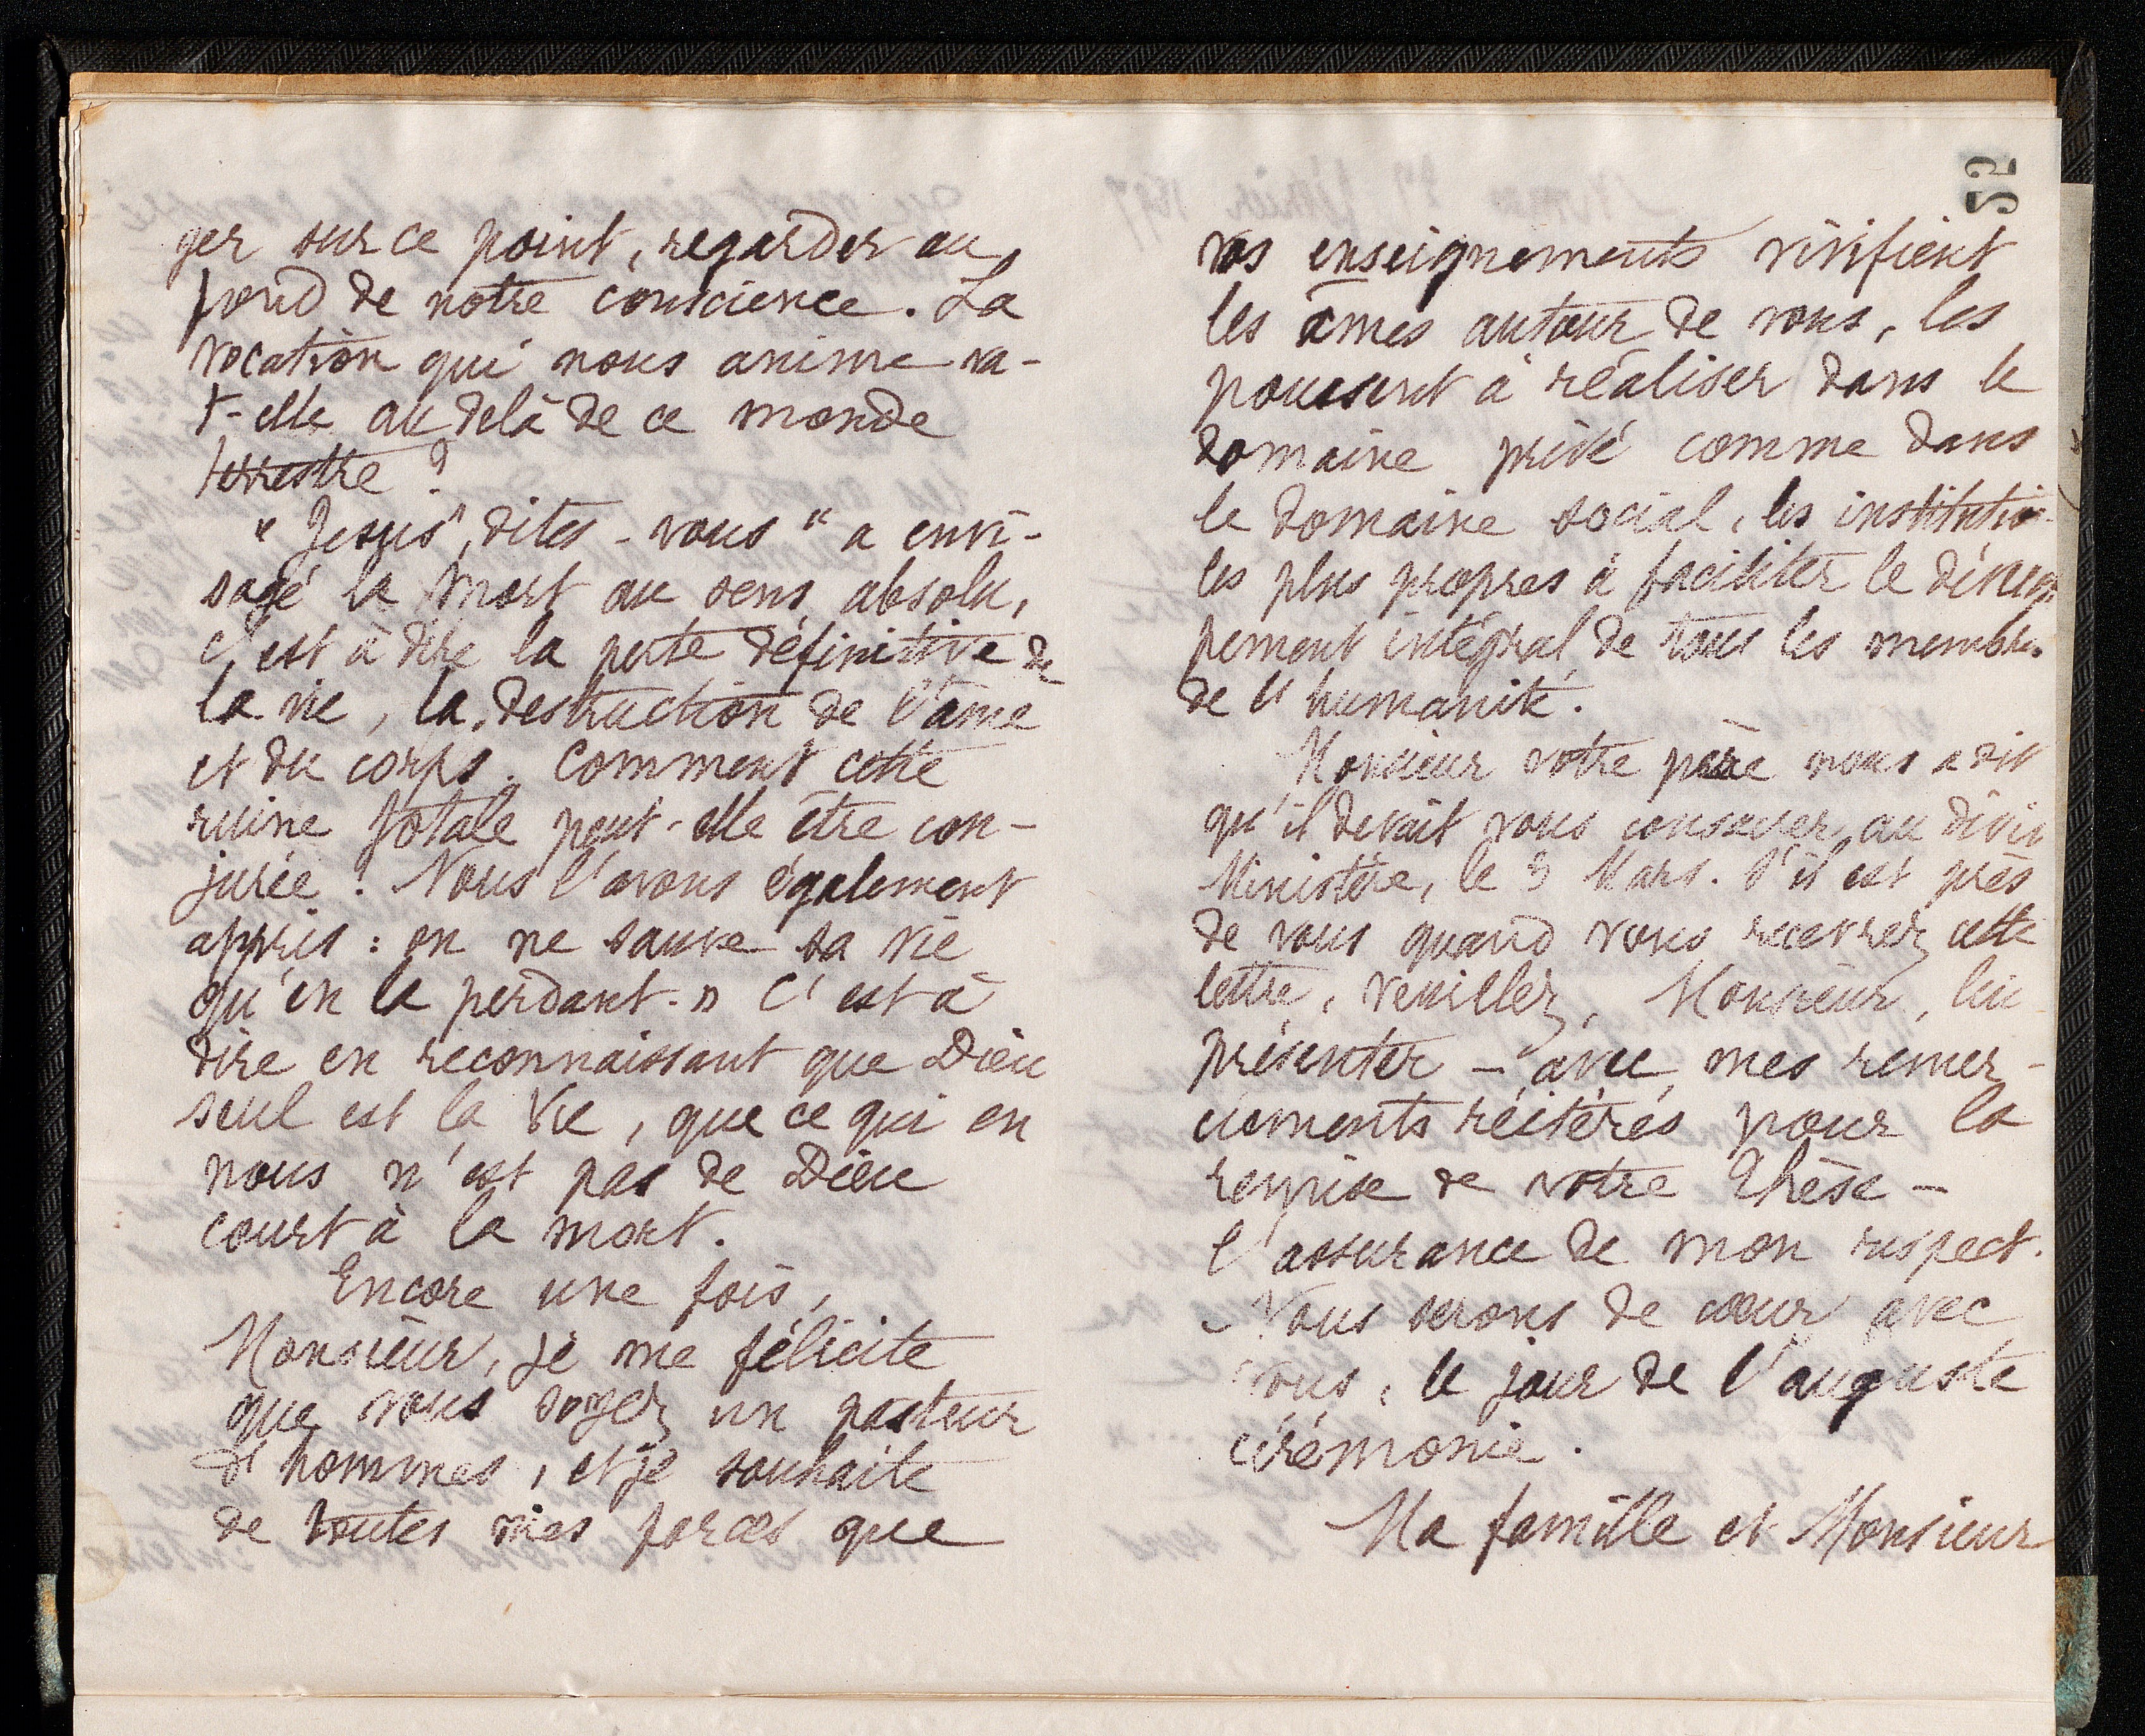 ger sur ce point, regarder au
fond de notre conscience. La
vocation qui nous anime va-
t-elle au delà de ce monde
terrestre ?
"Jesus", dites-vous "a envi-
sagé la Mort au sens absolu,
c'est à dire la perte définitive de
la vie, la destruction de l'âme
et du corps. Comment cette
ruine totale peut-elle être con-
jurée ? Nous l'avons également
appris : on ne sauve sa vie
qu'en la perdant." C'est à
dire en reconnaissant que Dieu
seul est la Vie, que ce qui en
nous n'est pas de Dieu
court à la mort.
Encore une fois,
Monsieur, je me félicite
que vous soyez un pasteur
d'hommes, et je souhaite
de toutes mes forces que
52
vos enseignements vivifient
les âmes autour de vous, les
poussent à réaliser dans le
domaine privé comme dans
le domaine social, les institutio
les plus propres à faciliter le dévelop
pement intégral de tous les membres
de l'humanité.
Monsieur votre père nous a dit
qu'il devait vous consacrer au divin
Ministère, le 3 Mars. S'il est près
de vous quand vous recevrez cette
lettre, veuillez, Monsieur, lui
présenter – avec mes remer-
ciements réitérés pour la
remise de votre Thèse –
l'assurance de mon respect.
Nous serons de cœur avec
vous, le jour de l'auguste
cérémonie.
Ma famille et Monsieur